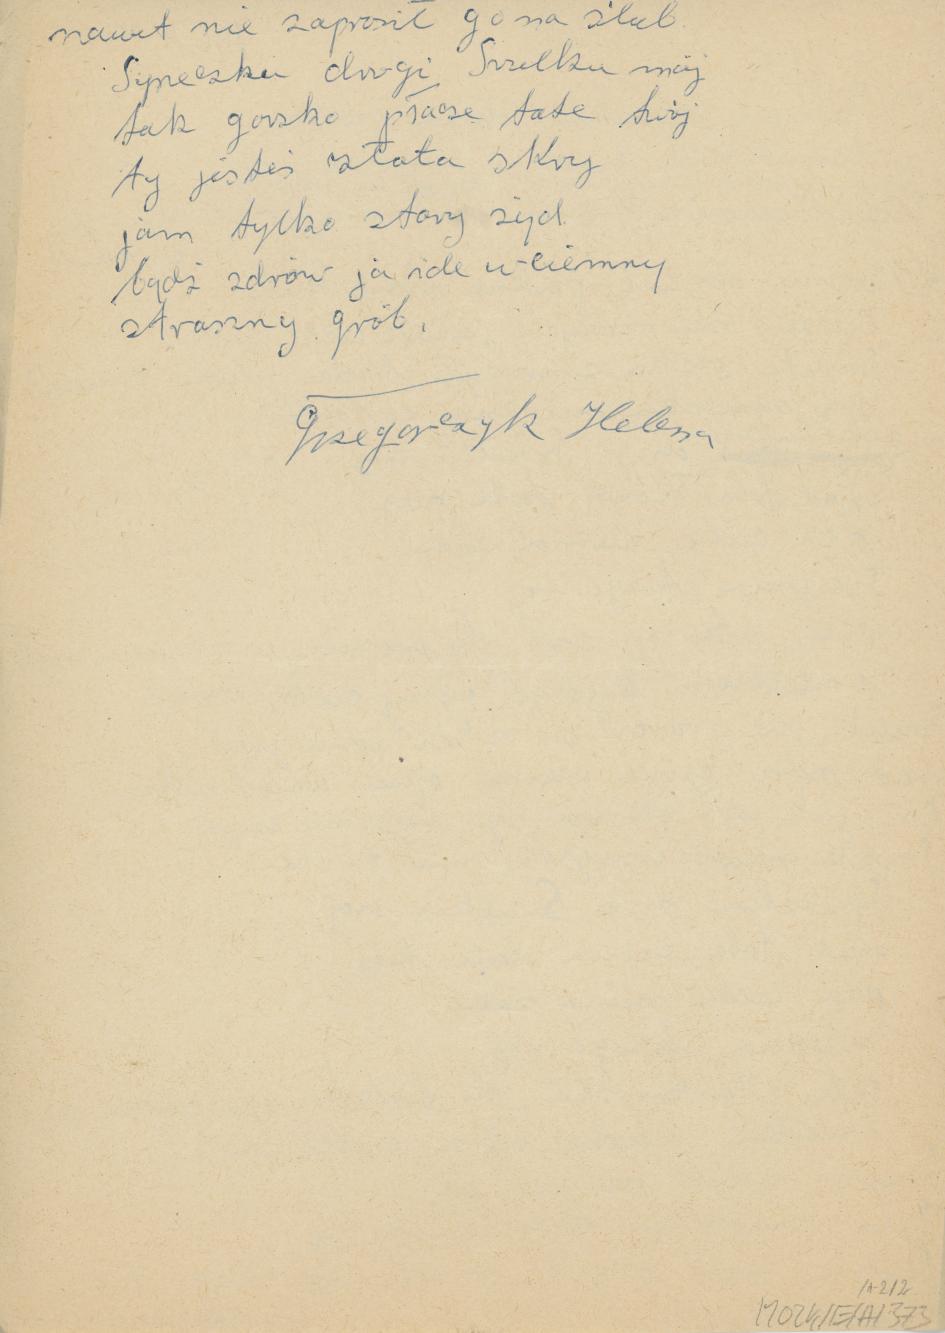 nawet nie zaprosił go na ślub.
Syneczku drogi Srulku mój
tak gorzko płacze tate twój
ty jesteś złota skry
jam tylko stary żyd
bądź zdrów ja ide w ciemny
straszny grób.
Grzegorczyk Helena
/A-2/2